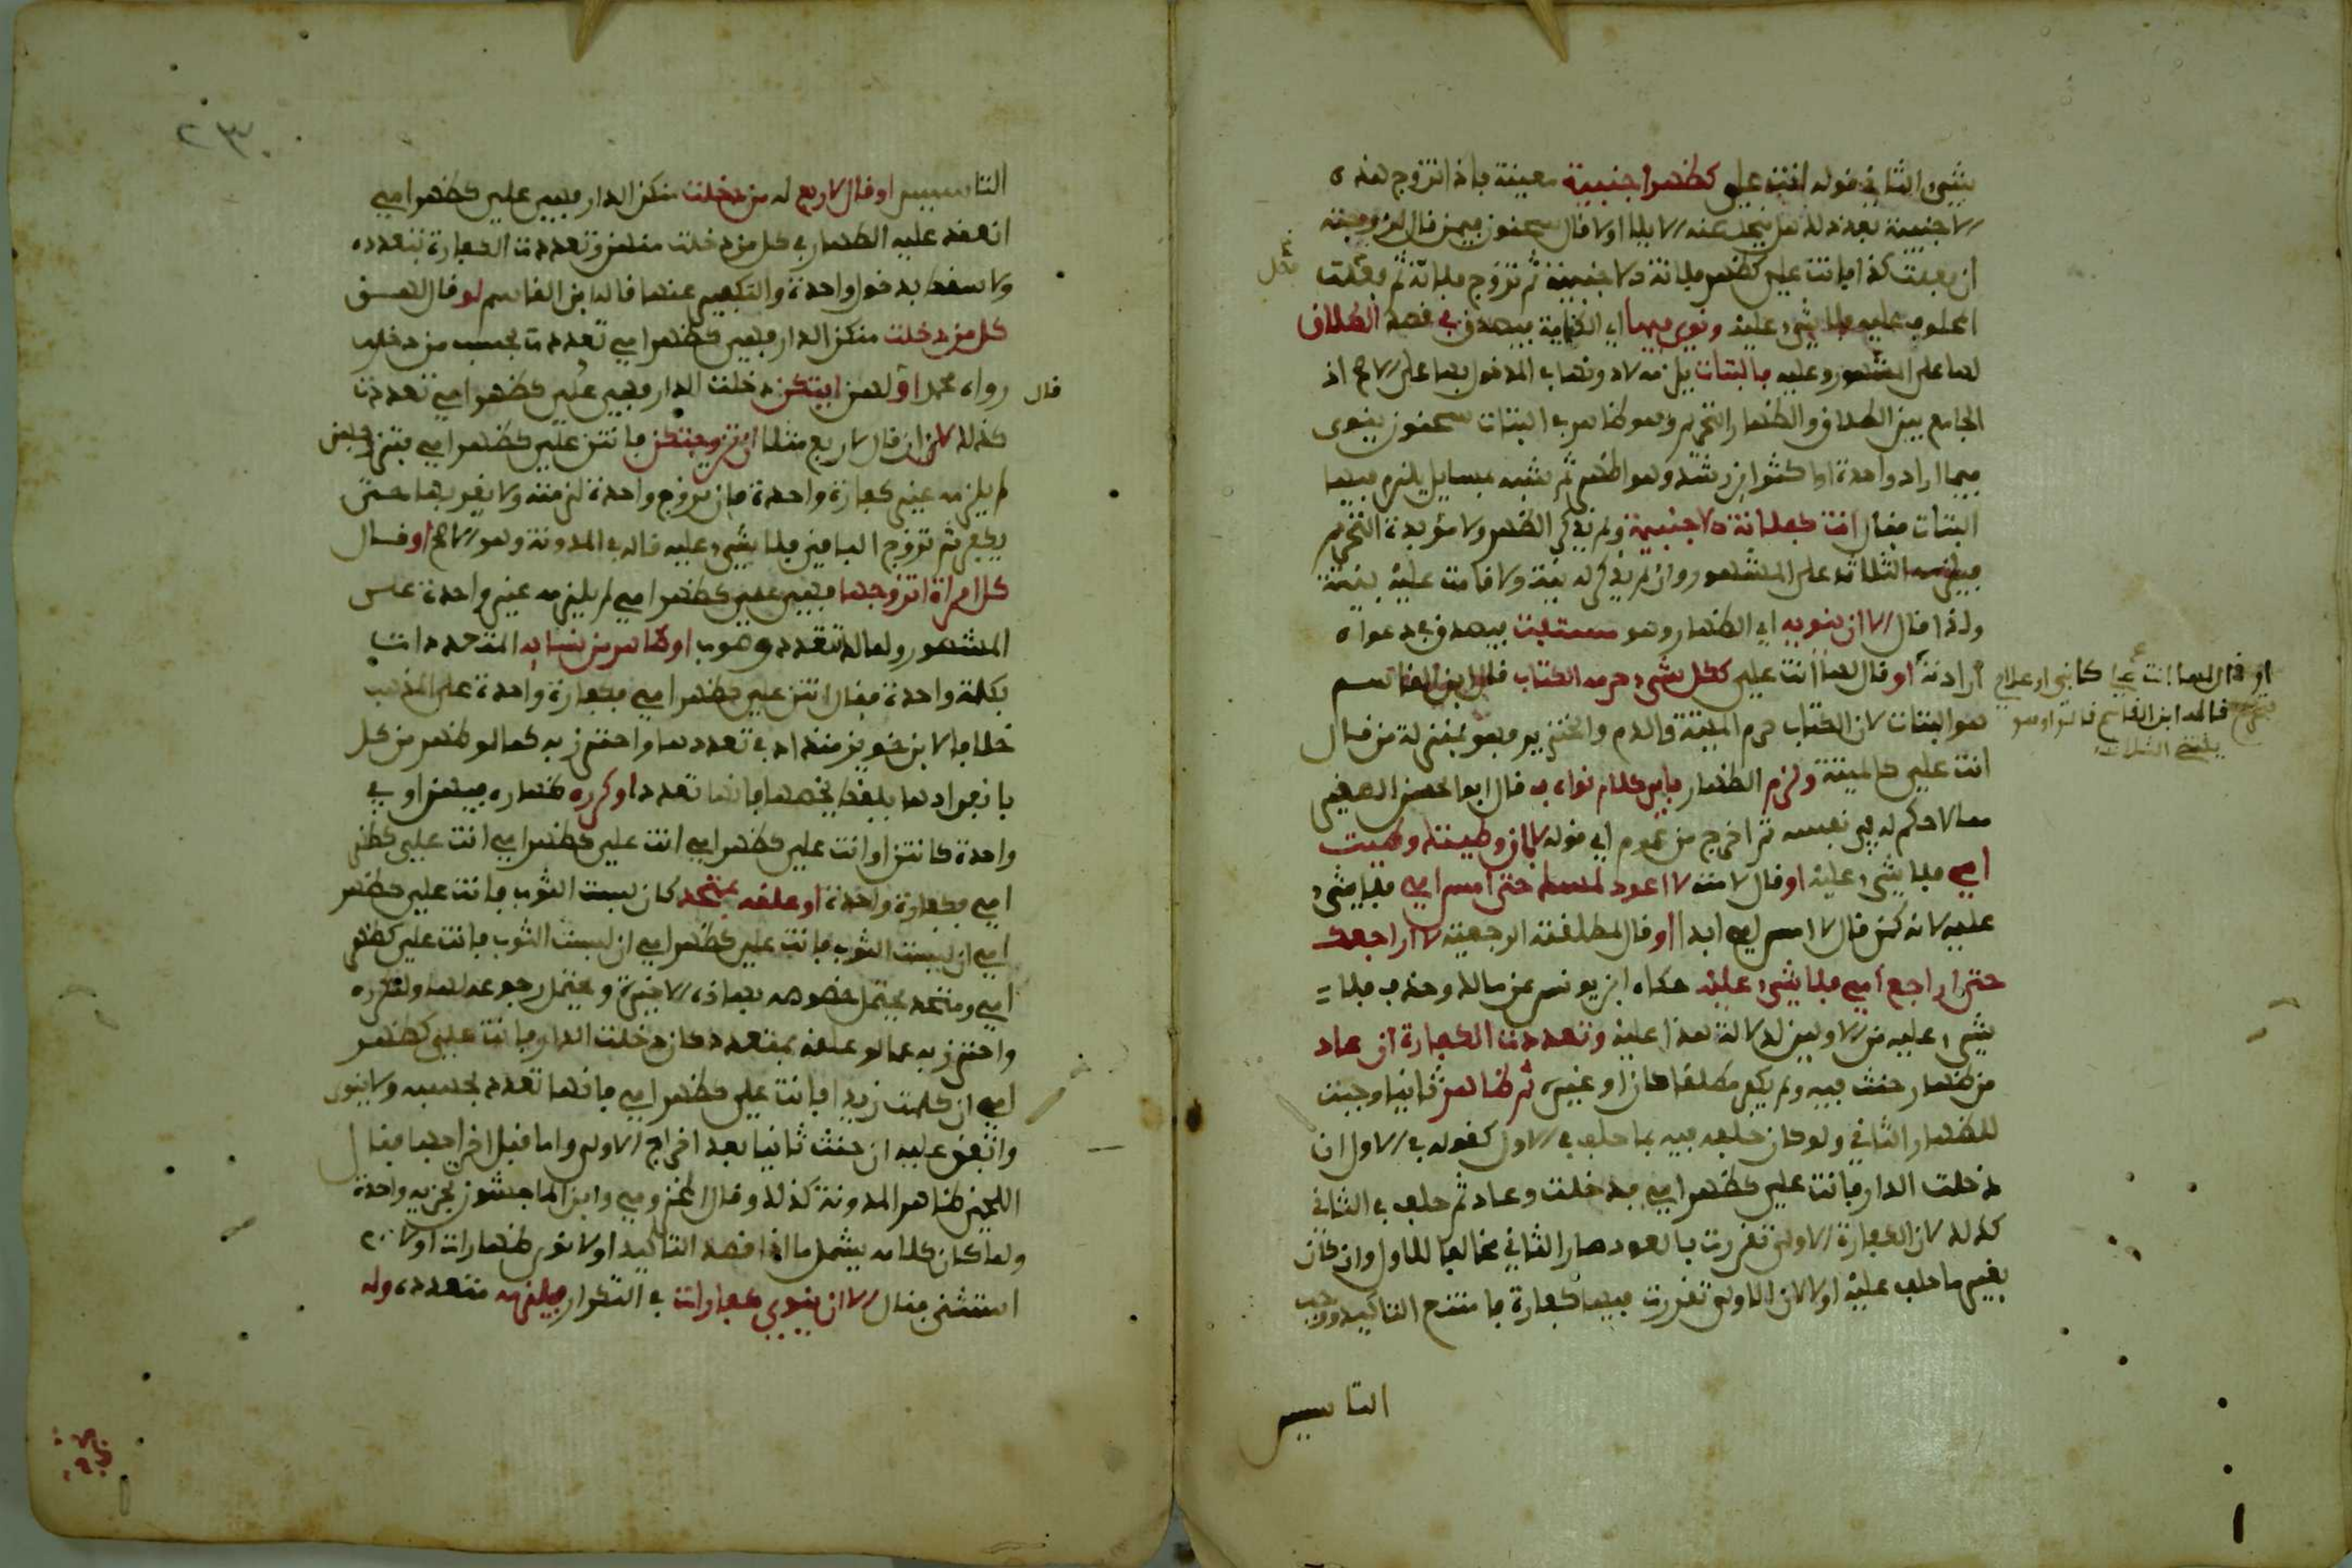 شيء الثاني قوله انت علي كظهر اجنبية معينة فاذا تزوج هذه
الاجنبية بعد ذلك هل ينحل عنه الايلا اولا قال سحنون فيمن قال لزوجته
ان فعلت كذا فانت علي كظهر فلانة الاجنبية ثم تزوج فلانة ثم فعلت
المحلوف عليه فلا شيء عليه ونوي فيها اي الكناية فيصدق في قصد الطلاق
لها على المشهور وعليه فالبتات يلزمه لا دونها في المدخول بها على الاصح اذ
الجامع بين الطلاق والظهار التحريم وهو ظاهر في البتات سحنون ينوى
فيما اراد واحدة او اكثر ابن رشد وهو اظهر ثم شبه بمسايل يلزم فيها
البتات فقال انت كفلانة الاجنبية ولم يذكر الظهر ولا مؤبدة التحريم
فيلزمه الثلاثة على المشهور وان لم يذكر له نية ولا قامت عليه بينة
ولذا قال الا ان ينويه اي الظهار وهو مستفت فيصدق في دعواه
ارادته او قال لها انت علي ككل شيء حرمه الكتاب قال ابن القاسم
او قال لها انت علي كابني او غلامي
قاله ابن القاسم
هو البتات لان الكتاب حرم الميتة والدم والخنزير وهو بمنزلة من قال
انت علي كالميتة ولزم الظهار باي كلام نواه به قال ابو الحسن الصغير
مما لا حكم له في نفسه ثم اخرج من عموم اي قوله لا بان وطيتك وطيت
امي فلا شيء عليه او قال لامته لا اعود لمسك حتى امس امي فلا شيء
عليه لانه كمن قال لا امس امي ابدا او قال لمطلقته الرجعية لا اراجعك
حتى اراجع امي فلا شيء عليه حكاه ابن يونس عن مالك وحذف فلا
شيء عليه من الاولين لدلالة هذا عليه وتعددت الكفارة ان عاد
من ظهار حنث فيه ولم يكفر مطلقا كان او غيره ثم ظاهر ثانيا وجبت
للظهار الثاني ولو كان حلفه فيه بما حلف في الاول كقوله في الاول ان
دخلت الدار فانت علي كظهر امي فدخلت وعاد ثم حلف في الثاني
كذلك لان الكفارة الاولى تقررت بالعود صار الثاني مخالفا للاول وان كان
بغير ما حلف عليه اولا لان الاولى تقررت فيها كفارة فامتنع التاكيد ووجب
التاسيس
٢٣٠
التاسيس او قال لاربع له من دخلت منكن الدار فهي علي كظهر امي
انعقد عليه الظهار في كل من دخلت منهن وتعددت الكفارة بتعدده
ولا يسقط بدخول واحدة والتكفير عنها قال ابن القاسم لو قال لهن
كل من دخلت منكن الدار فهي كظهر امي تعددت بحسب من دخلت
رواه محمد او قال لهن ايتكن دخلت الدار فهي علي كظهر امي تعددت
كذلك لا ان قال لاربع مثلا ان تزوجتكن فانتن علي كظهر امي فتزوجهن
لم يلزمه غير كفارة واحدة فان تزوج واحدة لزمته ولا يقربها حتى
يكفر ثم تزوج الباقين فلا شيء عليه قاله في المدونة وهو الاصح او قال
كل امراة اتزوجها فهي علي كظهر امي لم يلزمه غير واحدة على
المشهور ولمالك تتعدد وصوب او ظاهر من نسايه المتعددات
بكلمة واحدة فقال انتن علي كظهر امي فكفارة واحدة على المذهب
خلافا لابن خويز منداد في تعددها واحترز به عما لو ظاهر من كل
بانفرادها بلفظ يخصها فانها تعدد او كرره ظهاره فيهن او في
واحدة كانتن او انت علي كظهر امي انت علي كظهر امي انت علي كظهر
امي فكفارة واحدة او علقه بمتحد كان لبست الثوب فانت علي كظهر
امي ان لبست الثوب فانت علي كظهر امي ان لبست الثوب فانت علي كظهر
امي ومتحد يحتمل خصوصه بهاذه الاخيرة ويحتمل رجوعه لها ولتكرره
واحترز به عما لو علقه بمتعدد كان دخلت الدار فانت علي كظهر
امي ان كلمت زيدا فانت علي كظهر امي فانها تعدد بحسبه ولا ينوى
واتفق عليه ان حنث ثانيا بعد اخراج الاولى واما قبل اخراجها فقال
اللخمي ظاهر المدونة كذلك وقال المخزومي وابن الماجشون تجزيه واحدة
ولما كان كلامه يشمل ما اذا قصد التاكيد او لا نوى ظهارات او لا
استثنى فقال الا ان ينوي كفارات في التكرار فيلزمه متعدده وله